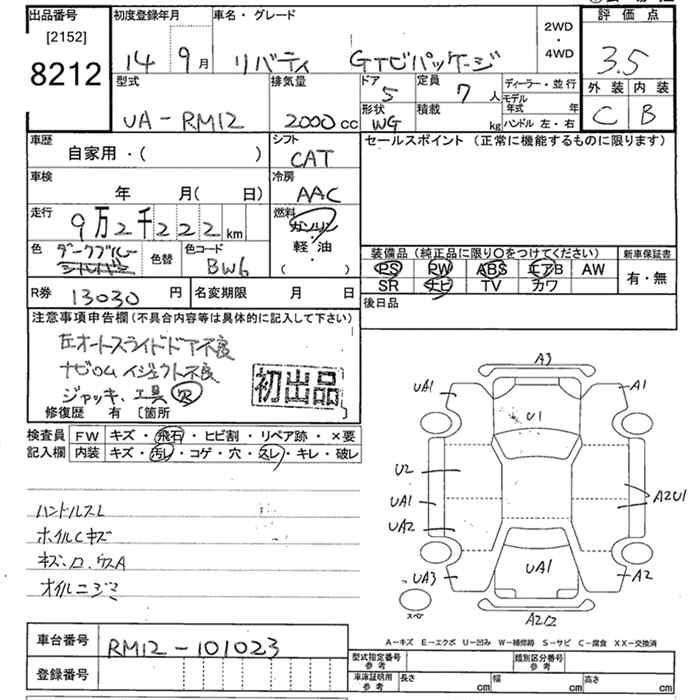 出品番号 初度登録年月 車名・グレード 2WD・4WD 評価点
[2152]
8212 14 9月 リバティ GTビパッケージ 3.5
型式 排気量 ドア 定員 ディーラー・並行 外装 内装
UA-RM12 2000cc 5 7人 モデル年式 年 C B
形状 積載 ハンドル 左・右
WG kg
車歴 自家用・( ) シフト CAT セールスポイント (正常に機能するものに限ります)
車検 年 月( 日) 冷房 AAC
走行 9万2千222km 燃料 ガソリン 軽・油 ( )
色 ダークブルー シルバー 色替 色コード BW6
装備品 (純正品に限り〇をつけてください) 新車保証書
PS PW ABS エアB AW 有・無
SR ナビ TV カワ
R券 13030円 名変期限 月 日 後日品
注意事項申告欄 (不具合内容等は具体的に記入して下さい)
左オートスライドドア不良
ナビROM イジェクト不良
ジャッキ、工具欠
初出品
修復歴 有 [箇所 ]
検査員 FW キズ・飛石・ヒビ割・リペア跡・×要
記入欄 内装 キズ・汚レ・コゲ・穴・スレ・キレ・破レ
ハンドルスレ
ホイルCキズ
オイルニジミ
A3
UA1 A1
U1
U2
UA1 A2U1
UA2
UA3 UA1 A2
スペア
A2
A-キズ E-エクボ U-凹み W-補修跡 S-サビ C-腐食 XX-交換済
車台番号 RM12-101023
登録番号
型式指定番号 参考 類別区分番号 参考
車庫証明用 参考 長さ cm 幅 cm 高さ cm